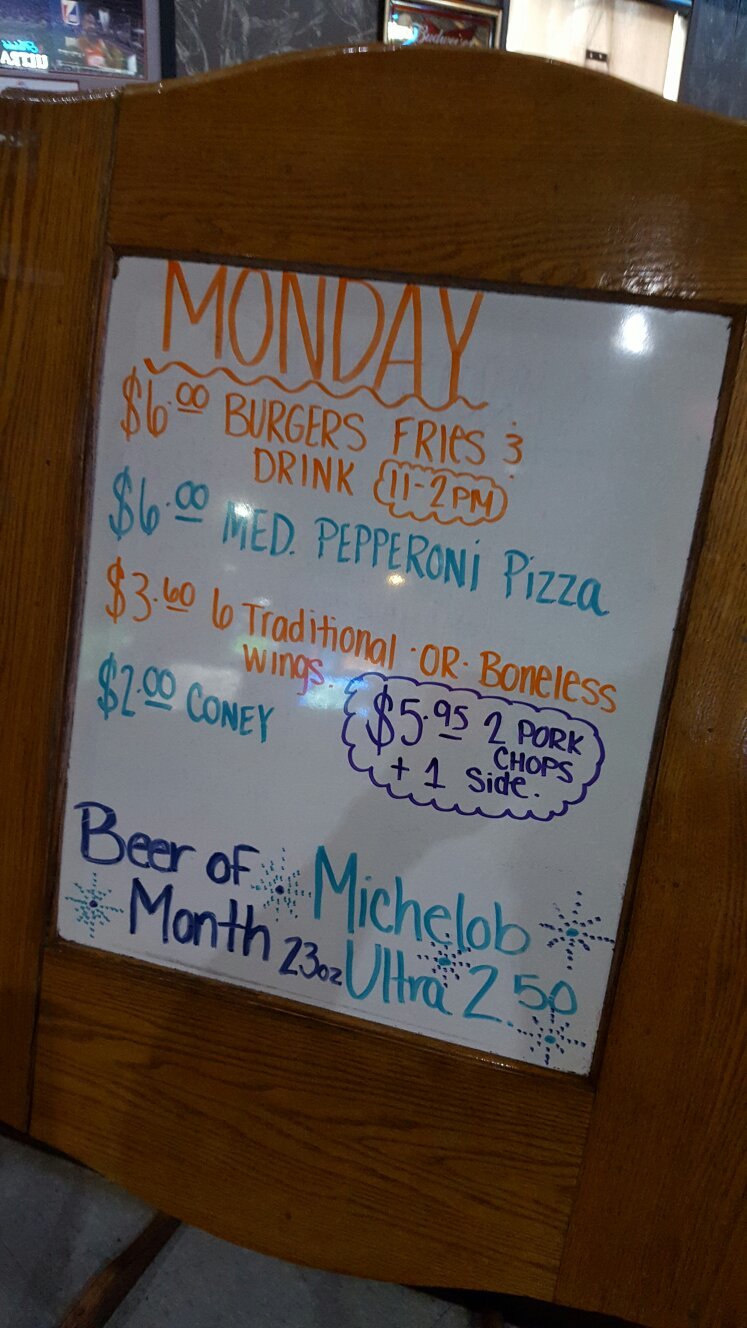 Budweiser
ULTRA
MONDAY
$6.00 BURGERS FRIES &
DRINK (11-2PM)
$6.00 MED. PEPPERONi Pizza
$3.60 6 Traditional ·OR· Boneless
wings.
$2.00 CONEY
$5.95 2 PORK
CHOPS
+ 1 Side.
Beer of
Month 23oz
Michelob
Ultra 2.50